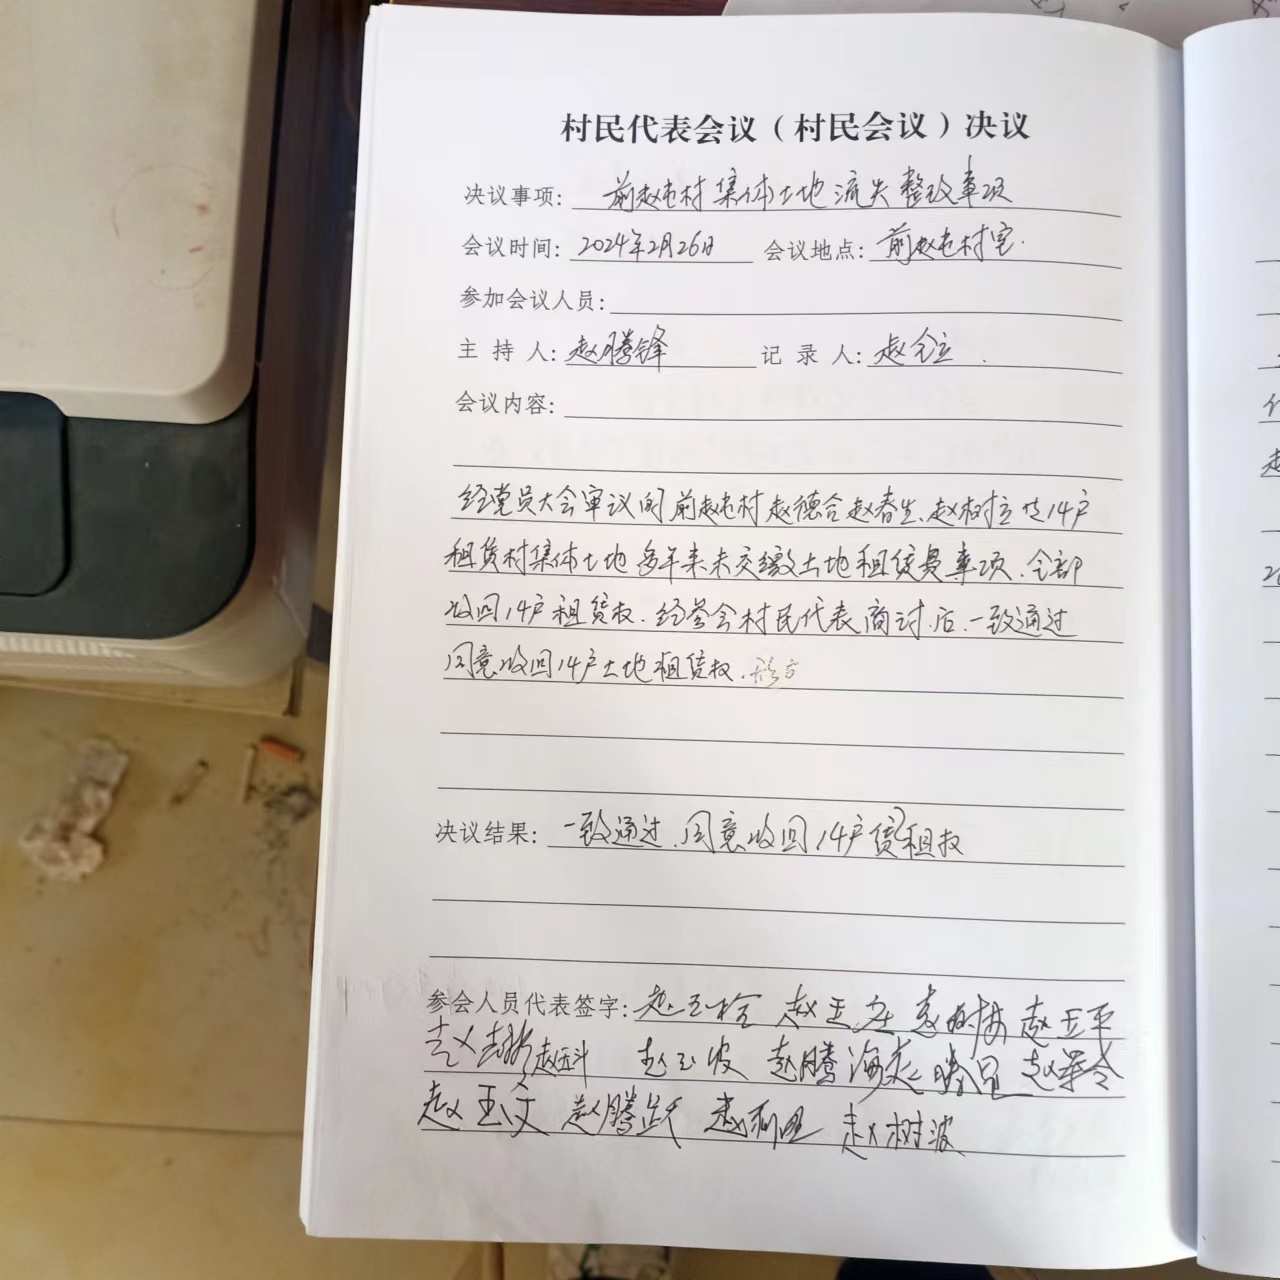 村民代表会议（村民会议）决议
决议事项：前赵屯村集体土地流失整改事项
会议时间：2024年2月26日 会议地点：前赵屯村室.
参加会议人员：
主持人：赵腾锋 记录人：赵全立.
会议内容：
经党员大会审议的前赵屯村赵德合赵春生、赵树立等14户
租赁村集体土地多年来未交缴土地租赁费事项.全部
收回14户租赁权.经参会村民代表商讨后.一致通过
同意收回14户土地租赁权.
决议结果：一致通过.同意收回14户赁租权
参会人员代表签字：赵玉栓 赵玉庄 赵树林 赵玉平
赵玉科 赵玉波 赵腾海 赵军令
赵玉文 赵腾跃 赵利民 赵树波